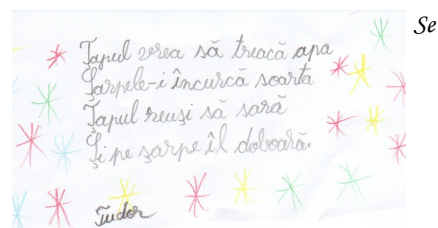 Țapul vrea să treacă apa
Șarpele-i încurcă soarta
Țapul reuși să sară
Și pe șarpe îl doboară.
Tudor
Se